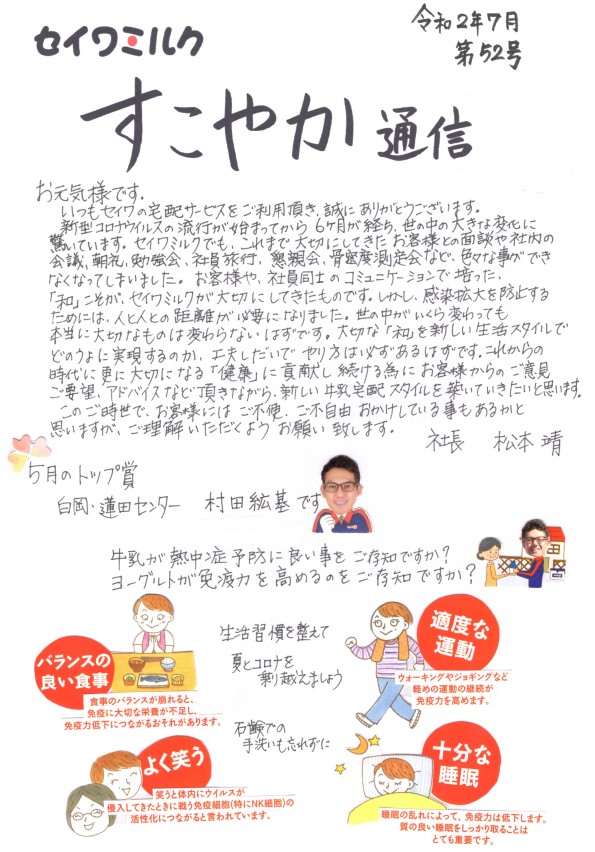 セイワミルク
令和2年7月
第52号
すこやか通信
お元気様です。
いつもセイワの宅配サービスをご利用頂き、誠にありがとうございます。
新型コロナウイルスの流行が始まってから6ヶ月が経ち、世の中の大きな変化に
驚いています。セイワミルクでも、これまで大切にしてきたお客様との面談や社内の
会議、朝礼、勉強会、社員旅行、懇親会、骨密度測定会など、色々な事ができ
なくなってしまいました。お客様や、社員同士のコミュニケーションで培った、
「和」こそが、セイワミルクが大切にしてきたものです。しかし、感染拡大を防止する
ためには、人と人との距離が必要になりました。世の中がいくら変わっても
本当に大切なものは変わらないはずです。大切な「和」を新しい生活スタイルで
どのように実現するのか、工夫しだいでやり方は必ずあるはずです。これからの
時代に更に大切になる「健康」に貢献し続ける為にお客様からのご意見
ご要望、アドバイスなど頂きながら、新しい牛乳宅配スタイルを築いていきたいと思います。
このご時世で、お客様にはご不便、ご不自由おかけしている事もあるかと
思いますが、ご理解いただくようお願い致します。
社長 松本 靖
5月のトップ賞
白岡・蓮田センター 村田紘基です
牛乳が熱中症予防に良い事をご存知ですか?
ヨーグルトが免疫力を高めるのをご存知ですか?
バランスの
良い食事
食事のバランスが崩れると、
免疫に大切な栄養が不足し、
免疫力低下につながるおそれがあります。
生活習慣を整えて
夏とコロナを
乗り越えましょう
適度な
運動
ウォーキングやジョギングなど
軽めの運動の継続が
免疫力を高めます。
石鹸での
手洗いも忘れずに
よく笑う
笑うと体内にウイルスが
侵入してきたときに戦う免疫細胞(特にNK細胞)の
活性化につながると言われています。
十分な
睡眠
睡眠の乱れによって、免疫力は低下します。
質の良い睡眠をしっかり取ることは
とても重要です。